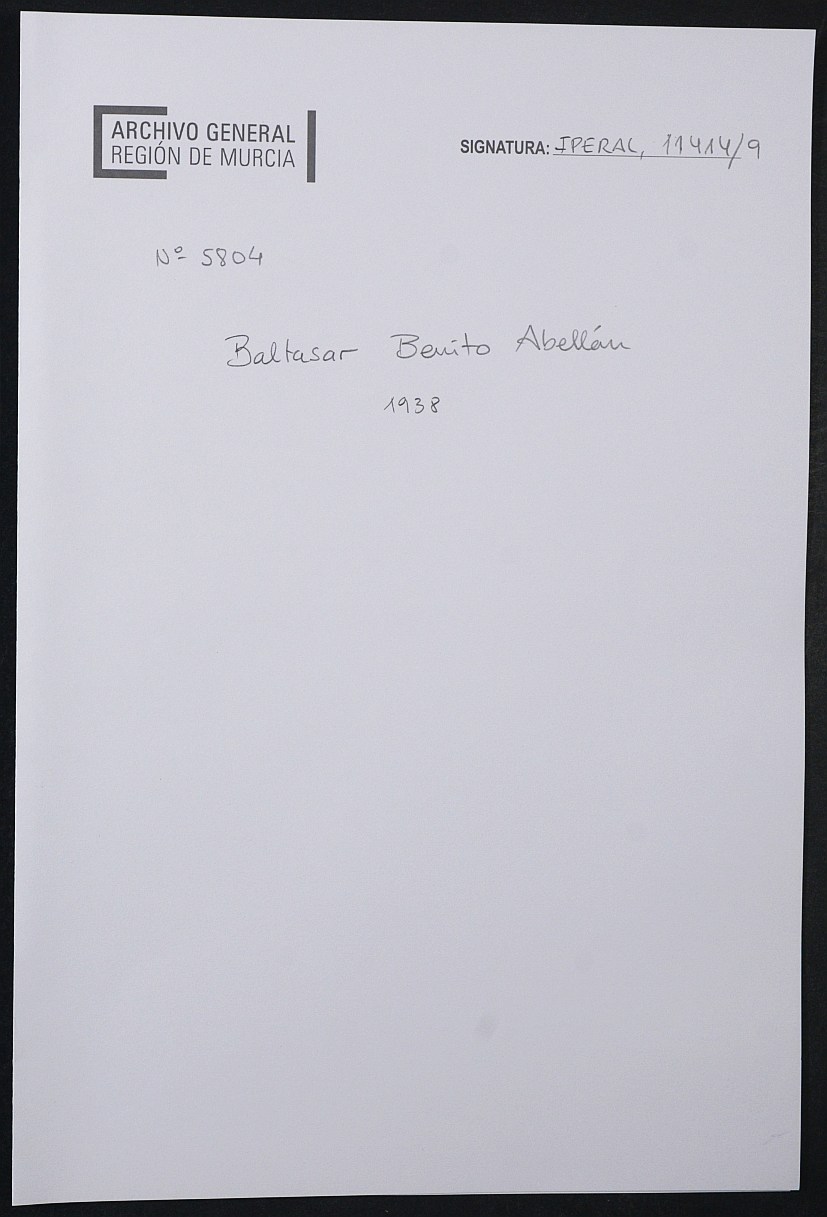 ARCHIVO GENERAL
REGIÓN DE MURCIA
SIGNATURA: IPERAL, 11414/9
Nº 5804
Baltasar Benito Abellán
1938